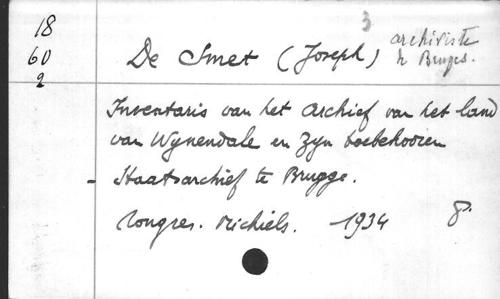 3
18
60
2
De Smet (Joseph) archiviste
à Bruges.
Inventaris van het Archief van het land
van Wynendale en zyn toebehooren
- Staatsarchief te Brugge.
Tongres. Michiels. 1934 8°.